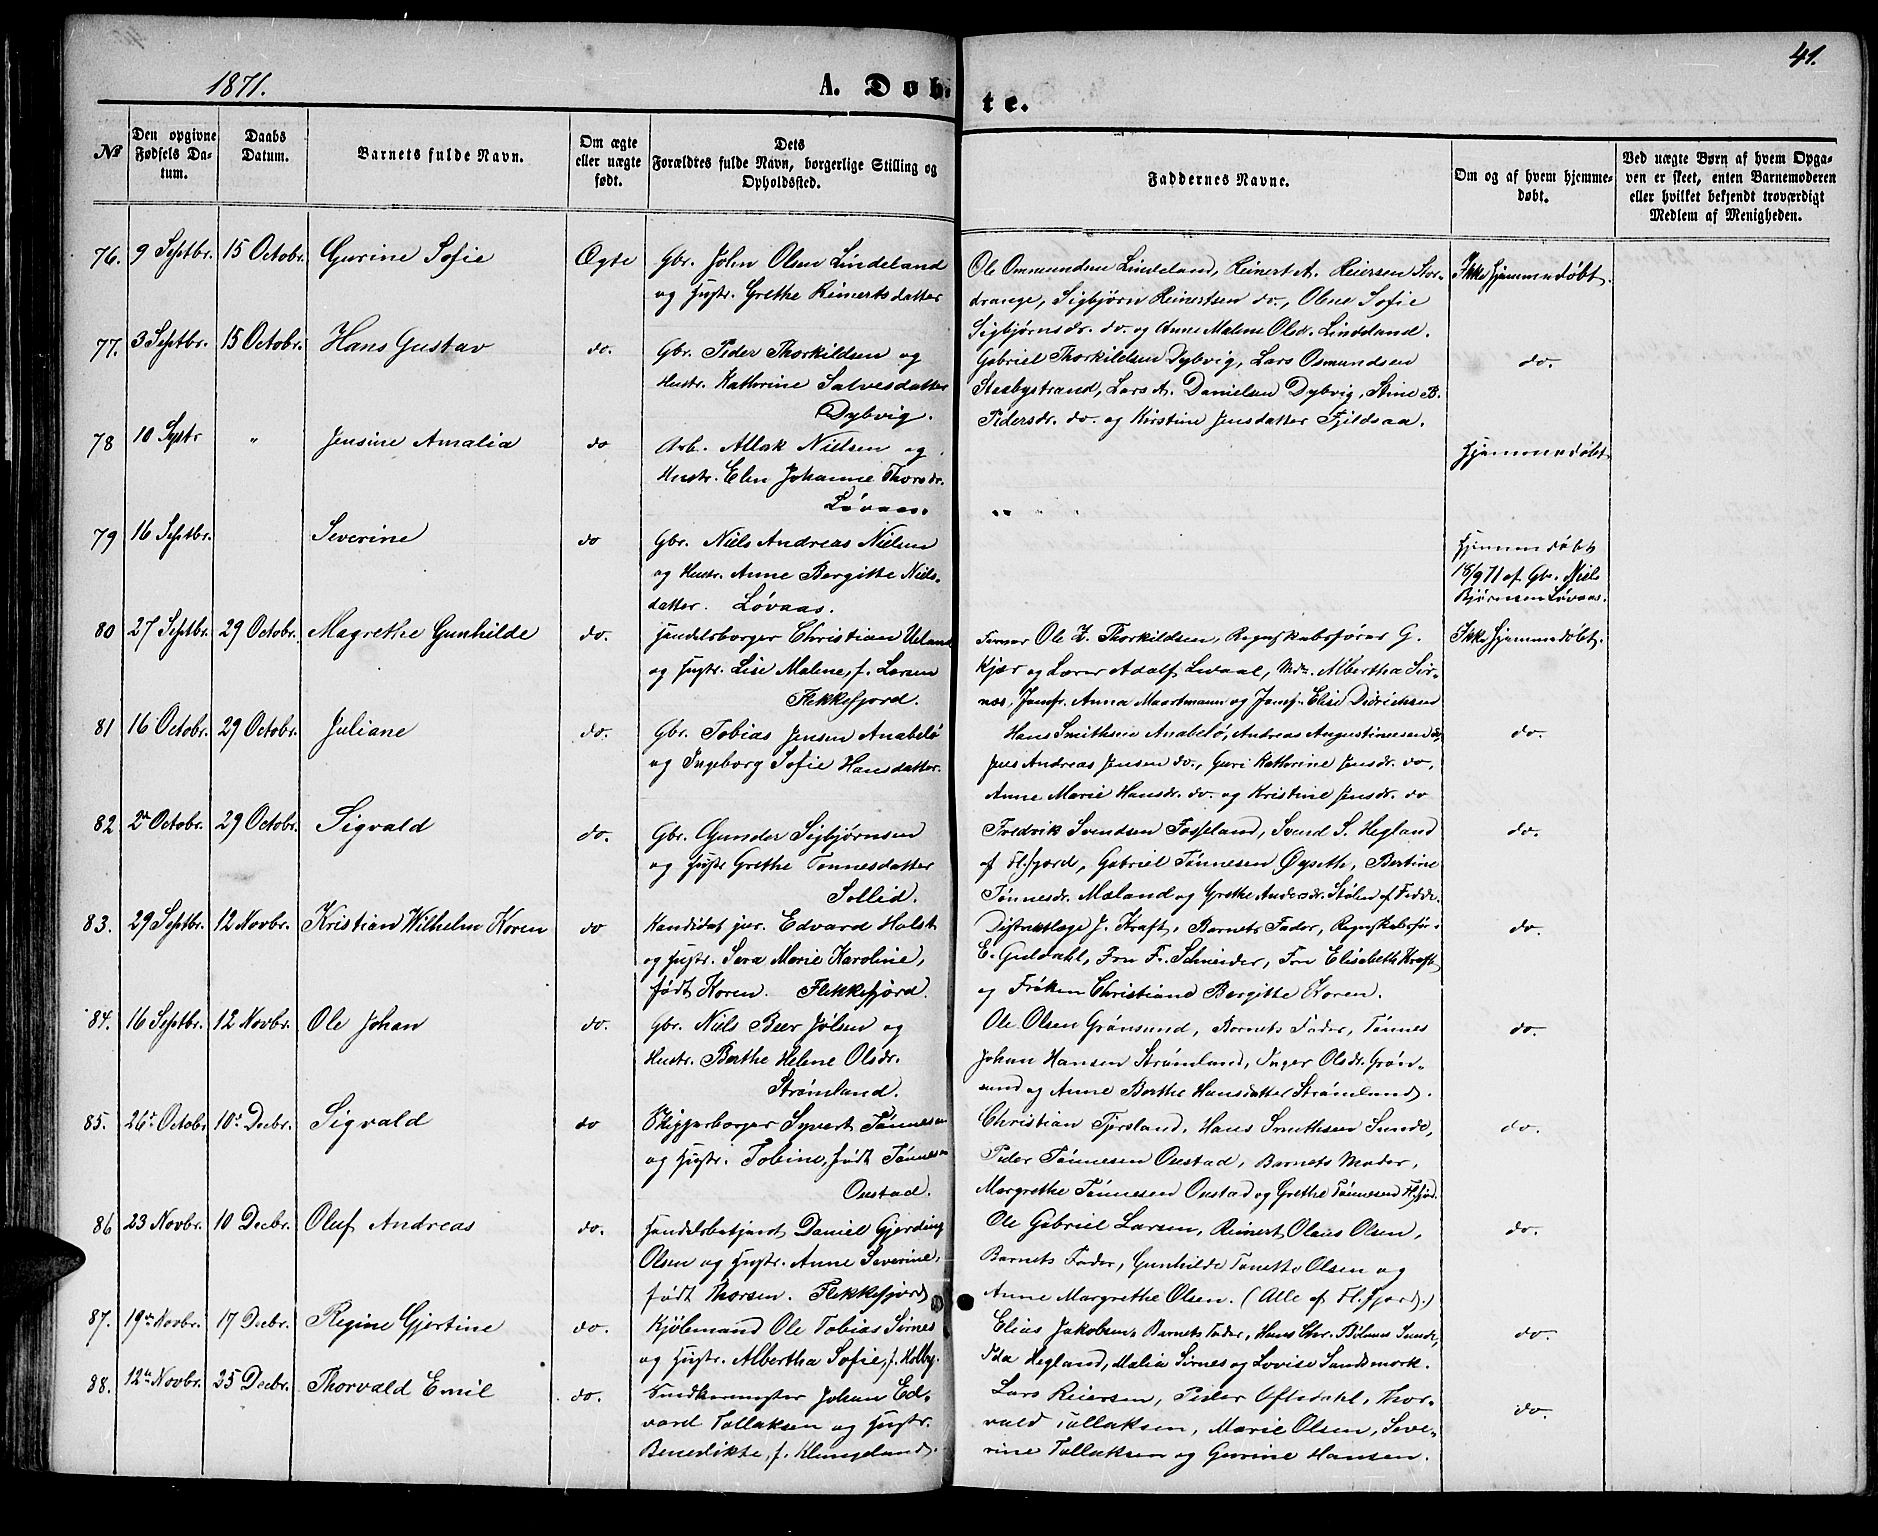 41.
1871.
A. Døbte.
No
Den opgivne Fødsels Datum.
Daabs Datum.
Barnets fulde Navn.
Om ægte eller uægte født.
Dets Forældres fulde Navn, borgerlige Stilling og Opholdssted.
Faddernes Navne.
Om og af hvem hjemmedøbt.
Ved uægte Børn af hvem Opgaven er skeet, enten Barnemoderen eller hvilket bekjendt troværdigt Medlem af Menigheden.
76. 9 Septbr. 15 Octobr. Gurine Sofie Ægte Gbr. John Olsen Lindeland
og Hustr. Grethe Reinertsdatter
Ole Ommundsen Lindeland, Reinert A. Reiersen Stor-
drange, Sigbjørn Reinertsen do., Olene Sofie
Sigbjørnsdr. do. og Anne Malene Olsdr. Lindeland.
Ikke hjemmedøbt.
77. 3 Septbr. 15 Octobr. Hans Gustav do. Gbr. Peder Thorkildsen og
Hustr. Kathrine Salvesdatter
Dybvig.
Gabriel Thorkildsen Dybvig, Lars Osmundsen
Stesbystrand, Lars A. Danielsen Dybvig, Stine B.
Pedersdr. do. og Kirstine Jensdatter Fjeldsaa.
do.
78 10 Septr " Jensine Amalia do Arb. Atlak Nielsen og
Hustr. Elen Johanne Thorsdr.
Løvaas.
" "
Hjemmedøbt
79 16 Septbr. Severine do Gbr. Niels Andreas Nielsen
og Hustr. Anne Bergitte Niels-
datter. Løvaas.
Hjemmedøbt
18/9 71 af Gbr. Niels
Bjørnsen Løvaas.
80 27 Septbr. 29 Octobr. Magrethe Gunhilde do. Handelsborger Christian Ueland
og Hustr. Lise Malene, f. Larsen
Flekkefjord.
Farver Ole Z. Thorkildsen, Regnskabsfører G.
Kjær og Lærer Adolf Lwaal, Md. Albertha Sir-
nes, Jomfr. Anna Maartmann og Jomf. Elise Didrichsen
Ikke hjemmedøbt.
81 16 Octobr. 29 Octobr. Juliane do. Gbr. Tobias Jensen Anabelø
og Ingeborg Sofie Hansdatter.
Hans Smithsen Anabelø, Andreas Augustinusen do,
Jens Andreas Jensen do., Guri Kathrine Jensdr. do,
Anne Marie Hansdr. do. og Kristine Jensdr. do
do.
82 2n Octobr. 29 Octobr. Sigvald do. Gbr. Gunder Sigbjørnsen
og Hustr Grethe Tønnesdatter
Sollid.
Fredrik Svendsen Fosseland, Svend S. Hegland
af Fl.fjord, Gabriel Tønnesen Øysæth, Bertine
Tønnesdr. Mæland og Grethe Andersdr. Stølen af Fedde.
do.
83. 29 Septbr. 12 Novbr. Kristian Wilhelm Koren do Kandidat jur. Edvard Holst
og Hustr. Sara Marie Karoline,
født Koren. Flekkefjord.
Distriktlæge J. Kraft, Barnets Fader, Regnskabsfør.
E. Guldahl, Fru F. Schneider, Fru Elisabeth Kraft
og Frøken Christiane Bergitte Koren.
do.
84. 16 Septbr. 12 Novbr. Ole Johan do. Gbr. Niels Beer Jølsen og
Hustr. Berthe Helene Olsdr.
Strømland.
Ole Olsen Grønsund, Barnets Fader, Tønnes
Johan Hansen Strømland, Inger Olsdr. Grøn-
sund og Anne Berthe Hansdatter Strømland.
do.
85. 26t Octobr 10d Decbr. Sigvald do Skipperborger Syvert Tønnesen
og Hustr. Tobine, født Tønnesen
Oustad.
Christian Tjørsland, Hans Smithsen Sunde,
Peder Tønnesen Oustad, Barnets Moder,
Margrethe Tønnesen Oustad og Grethe Tønnesen Fl.fjord.
do.
86 23 Novbr. 10 Decbr. Oluf Andreas do. Handelsbetjent Daniel Gjerding
Olsen og Hustr. Anne Severine,
født Thorsen. Flekkefjord
Ole Gabriel Larsen, Reinert Olaus Olsen,
Barnets Fader, Gunhilde Tonette Olsen og
Anne Margrethe Olsen. (Alle af Fl.fjord.)
do.
87. 19de Novbr. 17 Decbr. Regine Gjertine do. Kjøbmand Ole Tobias Sirnes
og Hustr. Albertha Sofie, f. Holby.
Elias Jakobsen, Barnets Fader, Hans Chr. Bølmus Sunde,
Ida Hegland, Malia Sirnes og Lovise Sandsmork.
do.
88. 12te Novbr. 25 Decbr. Thorvald Emil do. Snedkermester Johan Ed-
vard Tallaksen og Hustr.
Benedikte, f. Klungeland.
Lars Reiersen, Peder Oftedahl, Thor-
vald Tallaksen, Marie Olsen, Seve-
rine Tallaksen og Gurine Hansen.
do.